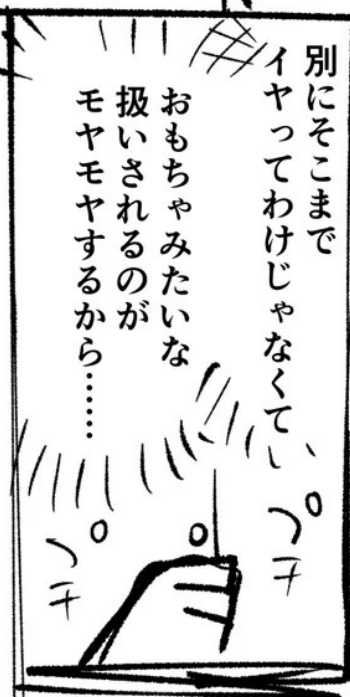 別にそこまで
イヤってわけじゃなくて
おもちゃみたいな
扱いされるのが
モヤモヤするから……
プチ
プチ